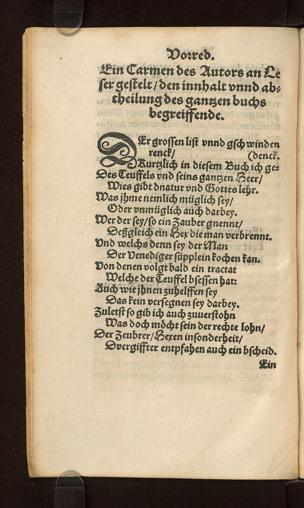 Vorred.
Ein Carmen des Autors an Le
ser gestelt/ den innhalt vnnd ab-
theilung des gantzen buchs
begreiffende.
DEr grossen list vnnd gschwinden
renck/ (denck.
Kurtzlich in diesem Buch ich ge-
Des Teuffels vnd seins gantzen Heer/
Wies gibt dnatur vnd Gottes lehr.
Was jhme nemlich müglich sey/
Oder vnmüglich auch darbey.
Wer der sey/ so ein Zauber gnennt/
Deßgleich ein Hex die man verbrennt.
Vnd welchs denn sey der Man
Der Venediger süpplein kochen kan.
Von denen volgt bald ein tractat
Welche der Teuffel bsessen hat:
Auch wie jhnen zuhelffen sey
Das kein versegnen sey darbey.
Zuletst so gib ich auch zuuerstohn
Was doch möcht sein der rechte lohn/
Der Zeubrer/ Hexen in sonderheit/
Dvergiffter entpfahen auch ein bscheid.
Ein